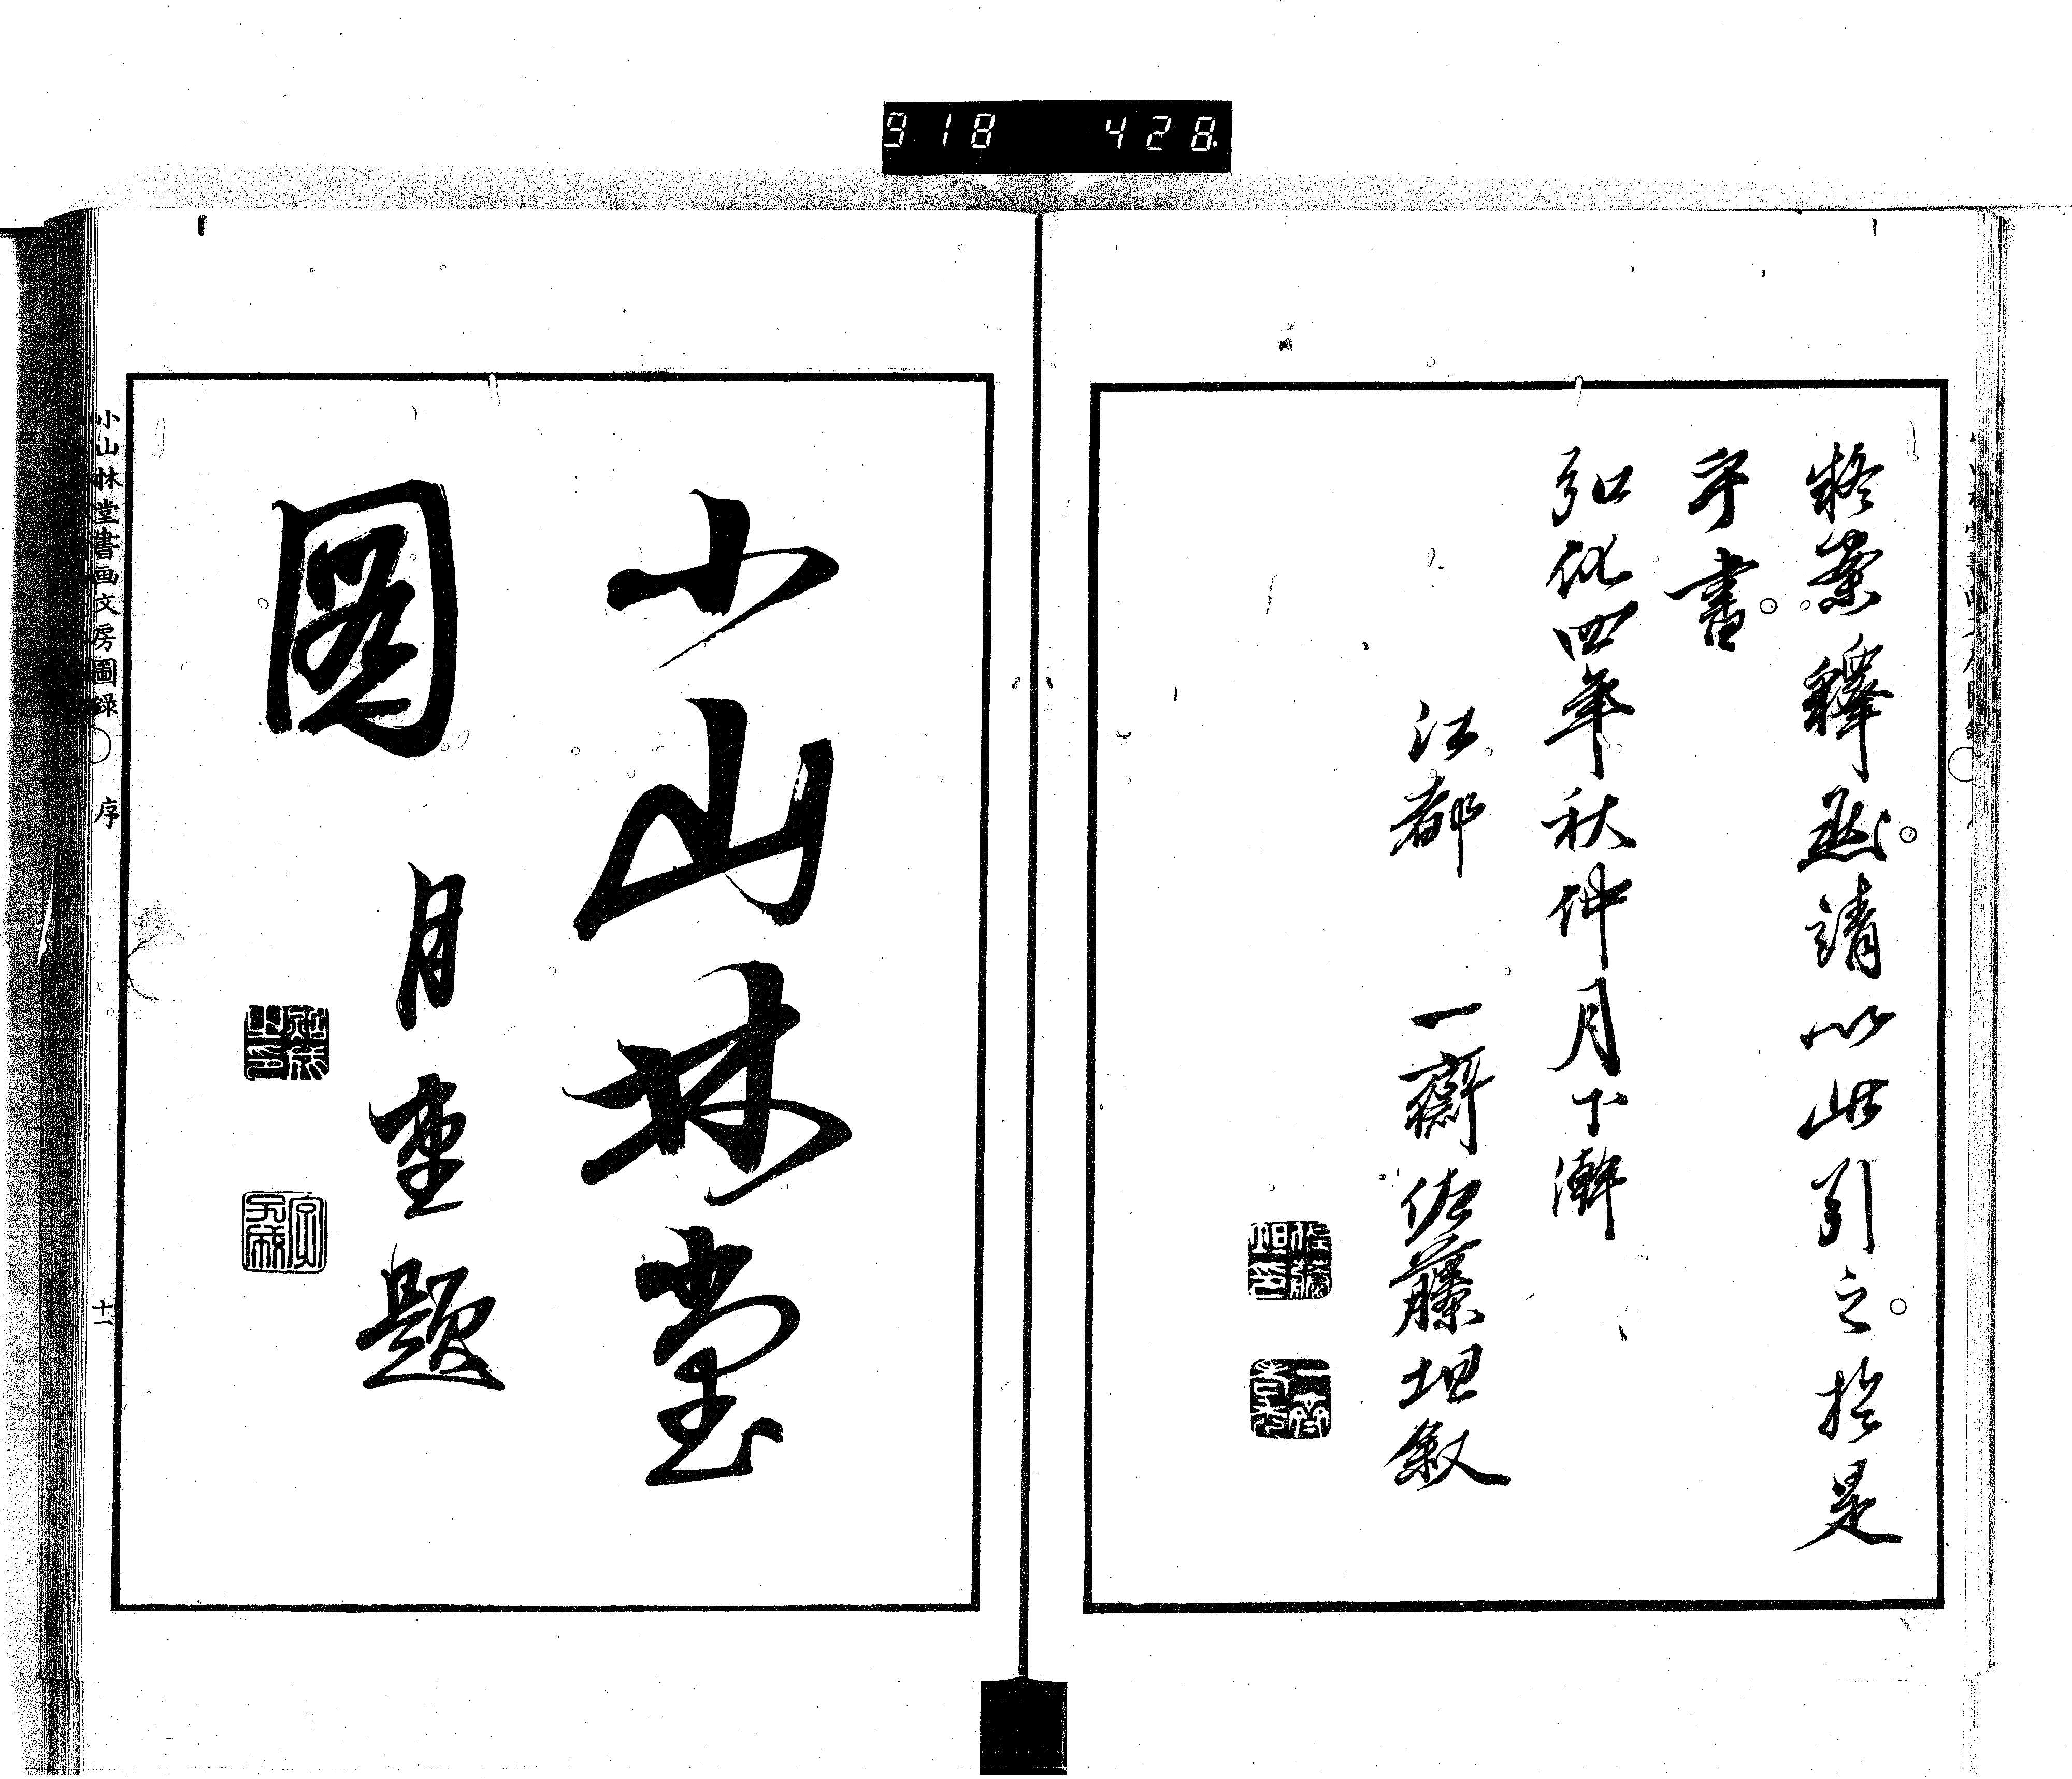 918 428.
疑案釋然。請以此引之。於是
乎書。
弘化四年秋仲月下澣
江都 一齋佐藤坦叙
佐藤坦印
小山林堂
圖
月重題
小山林堂書画文房圖錄〇 序 十一